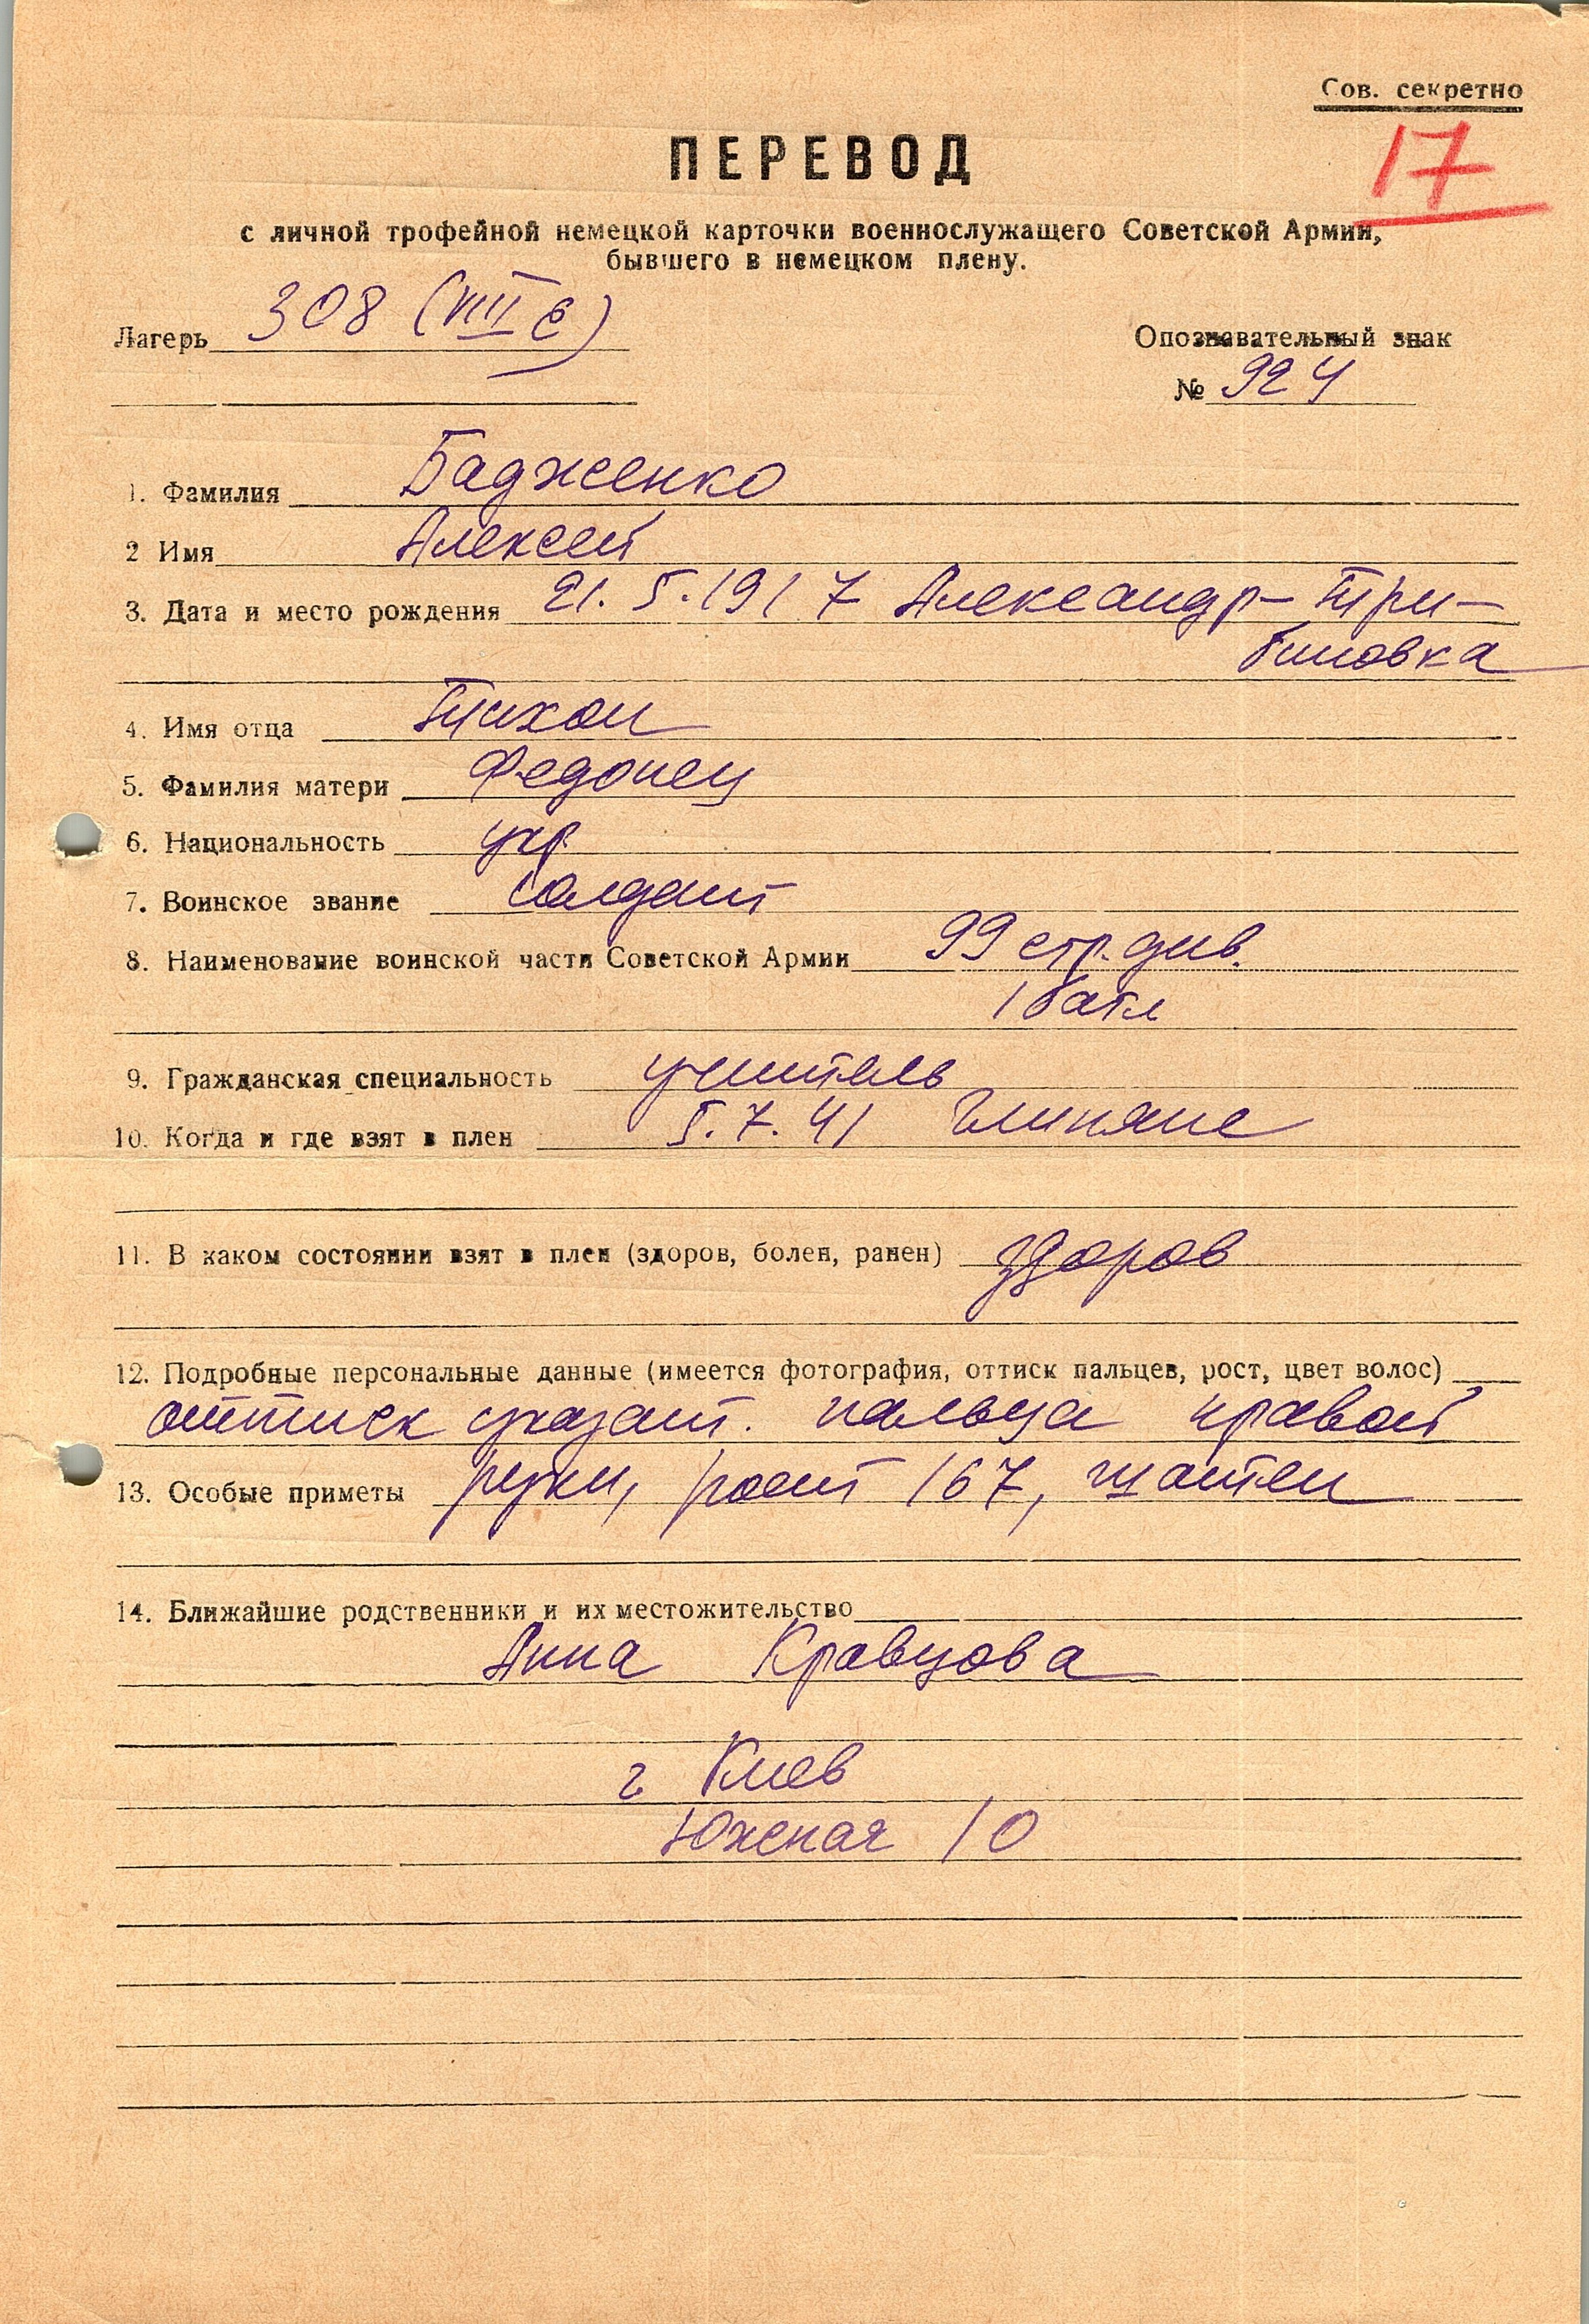 Сов. секретно
17
ПЕРЕВОД
с личной трофейной немецкой карточки военнослужащего Советской Армии,
бывшего в немецком плену.
Лагерь 308 (VIII E)
Опознавательный знак
№ 924
1. Фамилия Бадженко
2 Имя Алексей
3. Дата и место рождения 21. 5. 1917 Александр-Три-
биновка
4. Имя отца Тихон
5. Фамилия матери Федонец
6. Национальность укр.
7. Воинское звание солдат
8. Наименование воинской части Советской Армии 99 стр. див.
1 батл
9. Гражданская специальность учитель
10. Когда и где взят в плен 5. 7. 41 Глиняне
11. В каком состоянии взят в плен (здоров, болен, ранен) здоров
12. Подробные персональные данные (имеется фотография, оттиск пальцев, рост, цвет волос)
оттиск указат. пальца правой
13. Особые приметы руки, рост 167, шатен
14. Ближайшие родственники и их местожительство
Анна Кравцова
г Киев
Южная 10